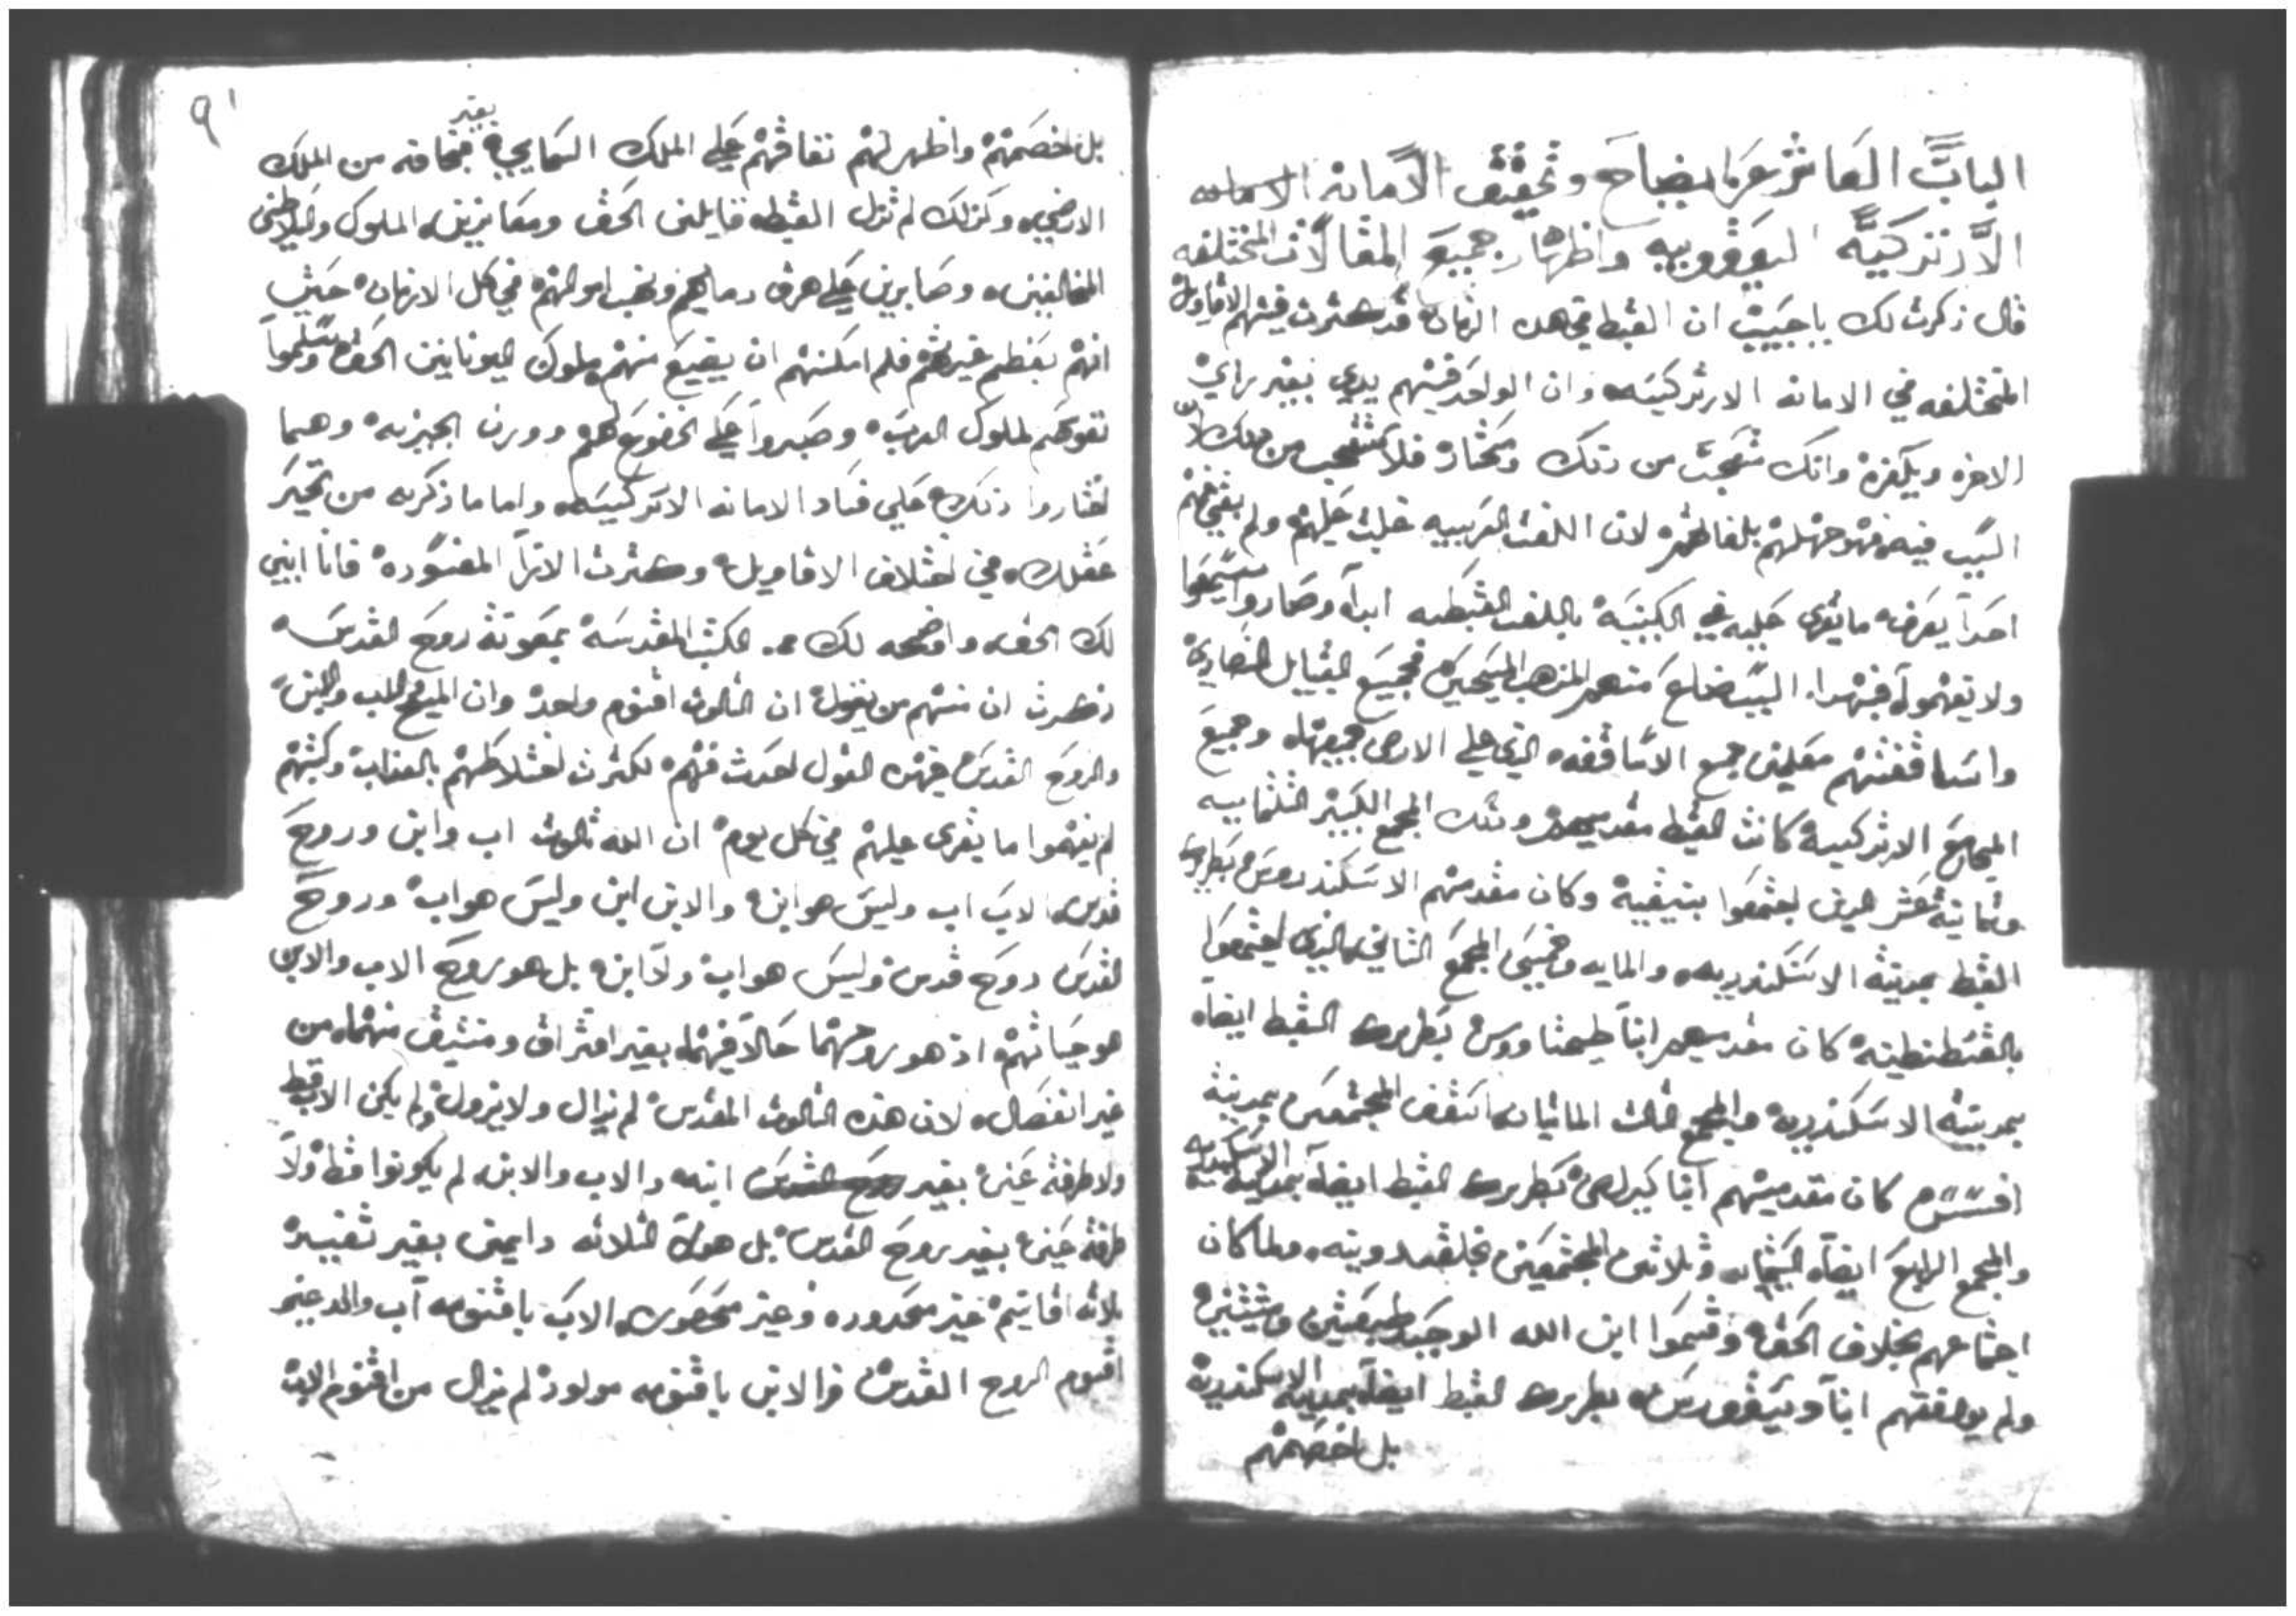 الباب العاشر بايضاح وتحقيق الامانه
الارتدكيه اليعقوبيه واظهار جميع المقالات المختلفه
قال ذكرت لك يا حبيب ان القبط في هده الزمان قد كثرت فيهم الاقاويل
المختلفه في الامانه الارتدكيه وان الواحد فيهم يدي بغير راي
الاخر ويكفره وانك متعجب من دلك ومحتار فلا تتعجب من دلك لان
السبب فيه فهو جهلهم بلغاطهم لان اللغت العربيه غلبت عليهم ولم بقي فيهم
احدا يعرف ما يقري عليه في الكنيسه باللغت القبطيه ابدا وصاروا يسمعوا
ولا يفهموا فبهدا السبب ضاع منهم المدهب المسيحي فجميع القبايل النصاري
واساقفتهم معلمين جميع الاساقفه الدي علي الارض جميعها وجميع
المجامع الارتدكيه كانت القبط مقدميهم وتلك المجمع الكبير التلتمايه
وتمانية عشر الدين اجتمعوا بنيقيه وكان مقدمهم الاسكندروس بطريرك
القبط بمدينة الاسكندريه والمايه وخمسين المجمع التاني الدي اجتمعوا
بالقسطنطينه كان مقدميهم انبا طيمتاووس بطريرك القبط ايضا
بمدينة الاسكندريه والمجمع التالت المايتان اسقف المجتمعين بمدينة
افسس كان مقدميهم انبا كيرلص بطريرك القبط ايضا بمدينة الاسكندريه
والمجمع الرابع ايضا الستمايه وتلاتين المجتمعين بخلقدونيه ولما كان
اجتماعهم بخلاف الحق وقسموا ابن الله الوحيد طبيعتين ومشيتين
ولم يوافقهم انبا ديسقورس بطريرك القبط ايضا بمدينة الاسكندريه
بل اخصمهم
٩١
بل اخصمهم واظهر لهم نفاقهم علي الملك السمايي بغير مخافه من الملك
الارضي وكدلك لم تزل القبط قايلين الحق ومعاندين الملوك والسلاطين
المخالفين وصابرين علي هرق دمايهم ونهب اموالهم في كل الازمان حيت
انهم بغضهم غيرهم فلم امكنهم ان يضيع منهم ملوك اليونانيين الحق وسلموا
نفوسهم لملوك العرب وصبروا علي الخضوع لهم ووزن الجيزيه وهما
اختاروا دلك علي فساد الامانه الارتدكسيه واما ما دكرته من تحير
عقلك في اختلاف الاقاويل وكترت الارا المفسوده فانا ابين
لك الحق واوضحه لك من الكتب المقدسه بمعونة روح القدس
دكرت ان منهم من يقول ان التالوت اقنوم واحد وان المسيح الاب والابن
والروح القدس فهده القول احدت فيهم لكترت اختلاطهم بالعداب وكتبهم
لم يفهموا ما يقري عليهم في كل يوم ان الله تالوت اب وابن وروح
قدس الاب اب وليس هو ابن والابن ابن وليس هو اب وروح
القدس روح قدس وليس هو اب ولا ابن بل هو روح الاب والابن
هو حياتهم اد هو روحهما حالا فيهما بغير افتراق ومنتبق منهما من
غير انفصال لان هده التالوت المقدس لم يزال ولا يزول ولم يكن الاب قط
ولا طرفة عين بغير ابنه والاب والابن لم يكونوا قط ولا
طرفة عين بغير روح القدس بل هولا التلاته دايمين بغير تغيير
تلاته اقانيم غير محدوده وغير محصوره الاب باقنومه اب والد غير
اقنوم الروح القدس والابن باقنومه مولود لم يزال من اقنوم الاب